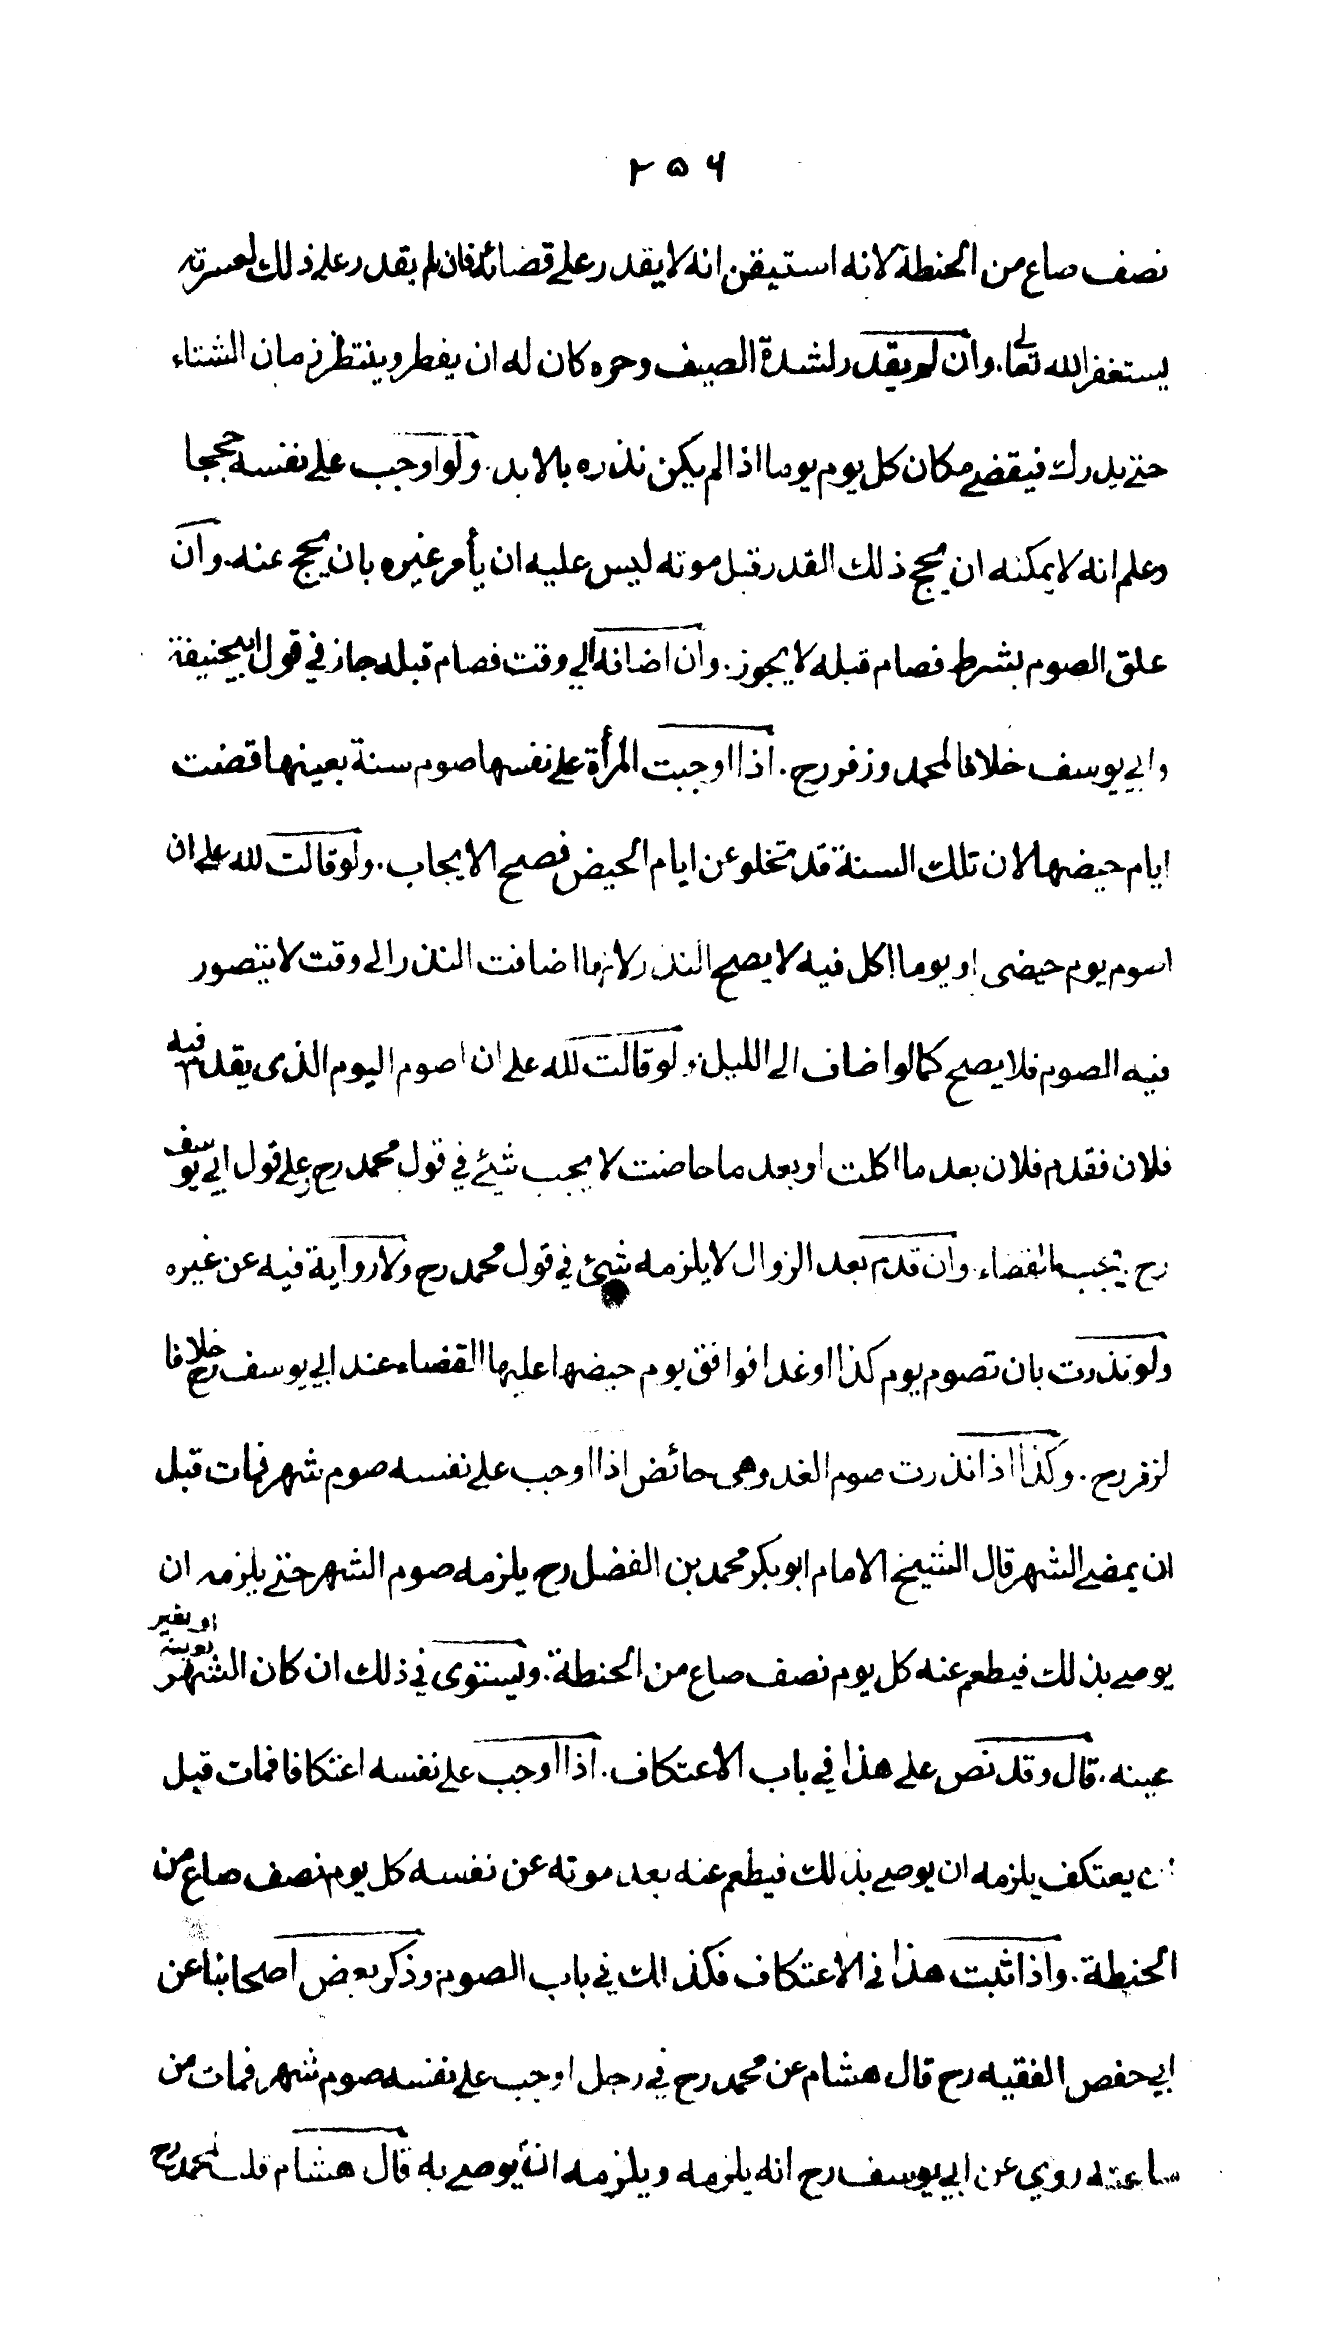 ۲۵۶
نصف صاع من الحنطة لانه استيقن انه لا يقدر على قضائه فان لم يقدر على ذلك لعسرته
يستغفر الله تعالى. وان لم يقدر لشدة الصيف وحره كان له ان يفطر وينتظر زمان الشتاء
حتى يدرك فيقضي مكان كل يوم يوما اذا لم يكن نذره بالابد. ولو اوجب على نفسه حججا
وعلم انه لا يمكنه ان يحج ذلك القدر قبل موته ليس عليه ان يأمر غيره بان يحج عنه. وان
علق الصوم بشرط فصام قبله لا يجوز. وان اضافه الى وقت فصام قبله جاز في قول ابيحنيفة
وابي يوسف خلافا لمحمد وزفر رح. اذا اوجبت المرأة على نفسها صوم سنة بعينها قضت
ايام حيضها لان تلك السنة قد تخلو عن ايام الحيض فصح الايجاب. ولو قالت لله على ان
اصوم يوم حيضى او يوما اكل فيه لا يصح النذر لانها اضافت النذر الى وقت لا يتصور
فيه الصوم فلا يصح كما لو اضاف الى الليل. ولو قالت لله على ان اصوم اليوم الذى يقدم فيه
فلان فقدم فلان بعد ما اكلت او بعد ما حاضت لا يجب شئ في قول محمد رح وعلى قول ابي يوسف
رح. يجب القضاء. وان قدم بعد الزوال لا يلزمه شئ في قول محمد رح ولا رواية فيه عن غيره
ولو نذرت بان تصوم يوم كذا او غدا فوافق يوم حيضها عليها القضاء عند ابي يوسف رح خلافا
لزفر رح. وكذا اذا نذرت صوم الغد وهى حائض اذا اوجب على نفسه صوم شهر فمات قبل
ان يمضي الشهر قال الشيخ الامام ابو بكر محمد بن الفضل رح يلزمه صوم الشهر حتى يلزمه ان
يوصي بذلك فيطعم عنه كل يوم نصف صاع من الحنطة. ويستوى في ذلك ان كان الشهر بعينه او بغير
عينه. قال وقد نص على هذا في باب الاعتكاف. اذا اوجب على نفسه اعتكافا فمات قبل
ان يعتكف يلزمه ان يوصي بذلك فيطعم عنه بعد موته عن نفسه كل يوم نصف صاع من
الحنطة. واذا ثبت هذا في الاعتكاف فكذلك في باب الصوم وذكر بعض اصحابنا عن
ابي حفص الفقيه رح قال هشام عن محمد رح في رجل اوجب على نفسه صوم شهر فمات من
ساعته روي عن ابي يوسف رح انه يلزمه ويلزمه ان يوصي به قال هشام قلت لمحمد رح